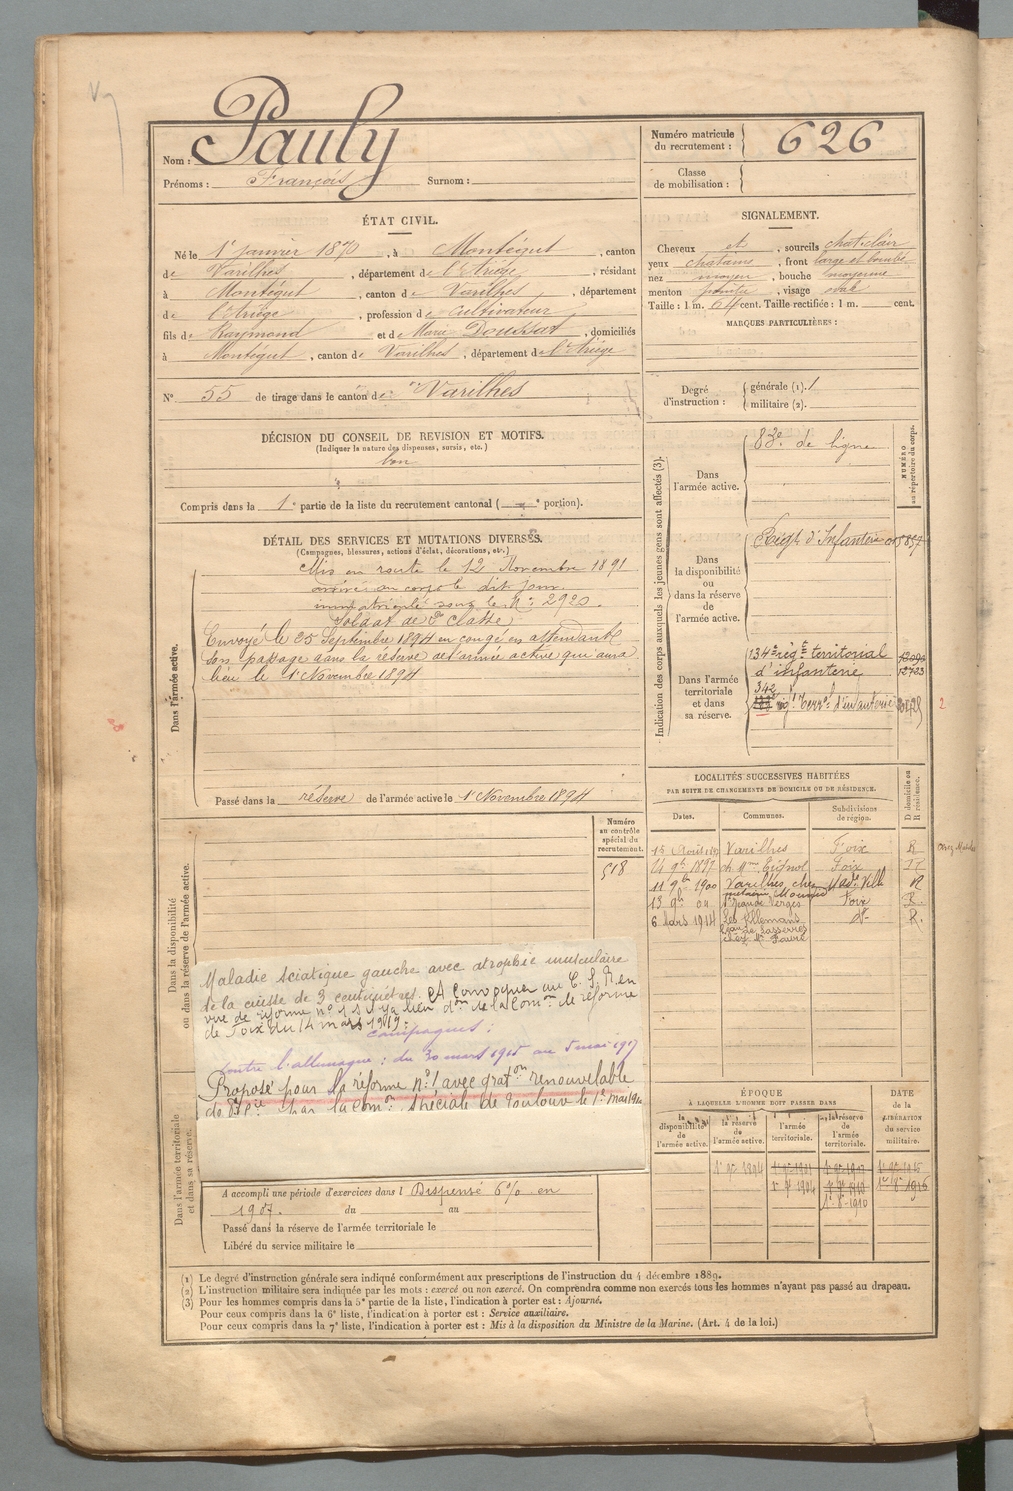 Nom : Pauly
Prénoms : François Surnom :
Numéro matricule du recrutement : 626
Classe de mobilisation :
ÉTAT CIVIL.
Né le 1r janvier 1870, à Montégut, canton
de Varilhes, département de l'Ariége, résidant
à Montégut, canton de Varilhes, département
de l'Ariége, profession de cultivateur
fils de Raymond et de Marie Doussat, domiciliés
à Montégut, canton de Varilhes, département de l'Ariége
N° 55 de tirage dans le canton de Varilhes
SIGNALEMENT.
Cheveux et, sourcils chat. clair
yeux chatains, front large et bombé
nez moyen, bouche moyenne
menton pointu, visage ovale
Taille : 1 m. 64 cent. Taille rectifiée : 1 m. cent.
MARQUES PARTICULIÈRES :
Degré d'instruction : générale (1). 1
militaire (2).
DÉCISION DU CONSEIL DE REVISION ET MOTIFS.
(Indiquer la nature des dispenses, sursis, etc.)
bon
Compris dans la 1e partie de la liste du recrutement cantonal ( e portion).
DÉTAIL DES SERVICES ET MUTATIONS DIVERSES.
(Campagnes, blessures, actions d'éclat, décorations, etc.)
Dans l'armée active.
Mis en route le 12 Novembre 1891
arrivé au corps le dit jour
immatriculé sous le N° 2920.
Soldat de 2e classe
Envoyé le 25 Septembre 1894 en congé en attendant
son passage dans la réserve de l'armée active qui aura
lieu le 1r Novembre 1894
Passé dans la réserve de l'armée active le 1r Novembre 1894
Indication des corps auxquels les jeunes gens sont affectés (3).
NUMÉRO au répertoire du corps.
Dans l'armée active.
83e de ligne
Dans la disponibilité ou dans la réserve de l'armée active.
Régt d'Infanterie
Dans l'armée territoriale et dans sa réserve.
134e régt territorial
d'infanterie
12723
342
régt Terral d'infanterie
2
LOCALITÉS SUCCESSIVES HABITÉES
PAR SUITE DE CHANGEMENTS DE DOMICILE OU DE RÉSIDENCE.
Dates. Communes. Subdivisions de région. D domicile ou R résidence.
15 Août Varilhes Foix R
24 9bre 1897 ch. Mme Eignol Foix
11 9bre 1900 Varilhes, chez R
13 9b 00 Verges Foix R.
6 Mars 1914 Les Allemans dt R.
chez Mr Faure
Numéro au contrôle spécial du recrutement.
518
Dans la disponibilité ou dans la réserve de l'armée active.
Maladie sciatique gauche avec atrophie musculaire
de la cuisse de 3 centimètres. A convoquer au C. S. R. en
vue de réforme n° 1 s'il y a lieu don de la Comon de réforme
de Foix du 14 mars 1919.
campagnes :
contre l'allemagne : du 30 mars 1915 au 5 mai 1917
Proposé pour la réforme n° 1 avec graton renouvelable
par la Comon spéciale de Toulouse le 1r mai
Dans l'armée territoriale et dans sa réserve.
A accompli une période d'exercices dans l Dispensé 6% en
1907. du au
Passé dans la réserve de l'armée territoriale le
Libéré du service militaire le
ÉPOQUE
À LAQUELLE L'HOMME DOIT PASSER DANS
la disponibilité de l'armée active.
la réserve de l'armée active.
l'armée territoriale.
la réserve de l'armée territoriale.
DATE de la LIBÉRATION du service militaire.
1r 9bre 1894
(1) Le degré d'instruction générale sera indiqué conformément aux prescriptions de l'instruction du 4 décembre 1889.
(2) L'instruction militaire sera indiquée par les mots : exercé ou non exercé. On comprendra comme non exercés tous les hommes n'ayant pas passé au drapeau.
(3) Pour les hommes compris dans la 5e partie de la liste, l'indication à porter est : Ajourné.
Pour ceux compris dans la 6e liste, l'indication à porter est : Service auxiliaire.
Pour ceux compris dans la 7e liste, l'indication à porter est : Mis à la disposition du Ministre de la Marine. (Art. 4 de la loi.)